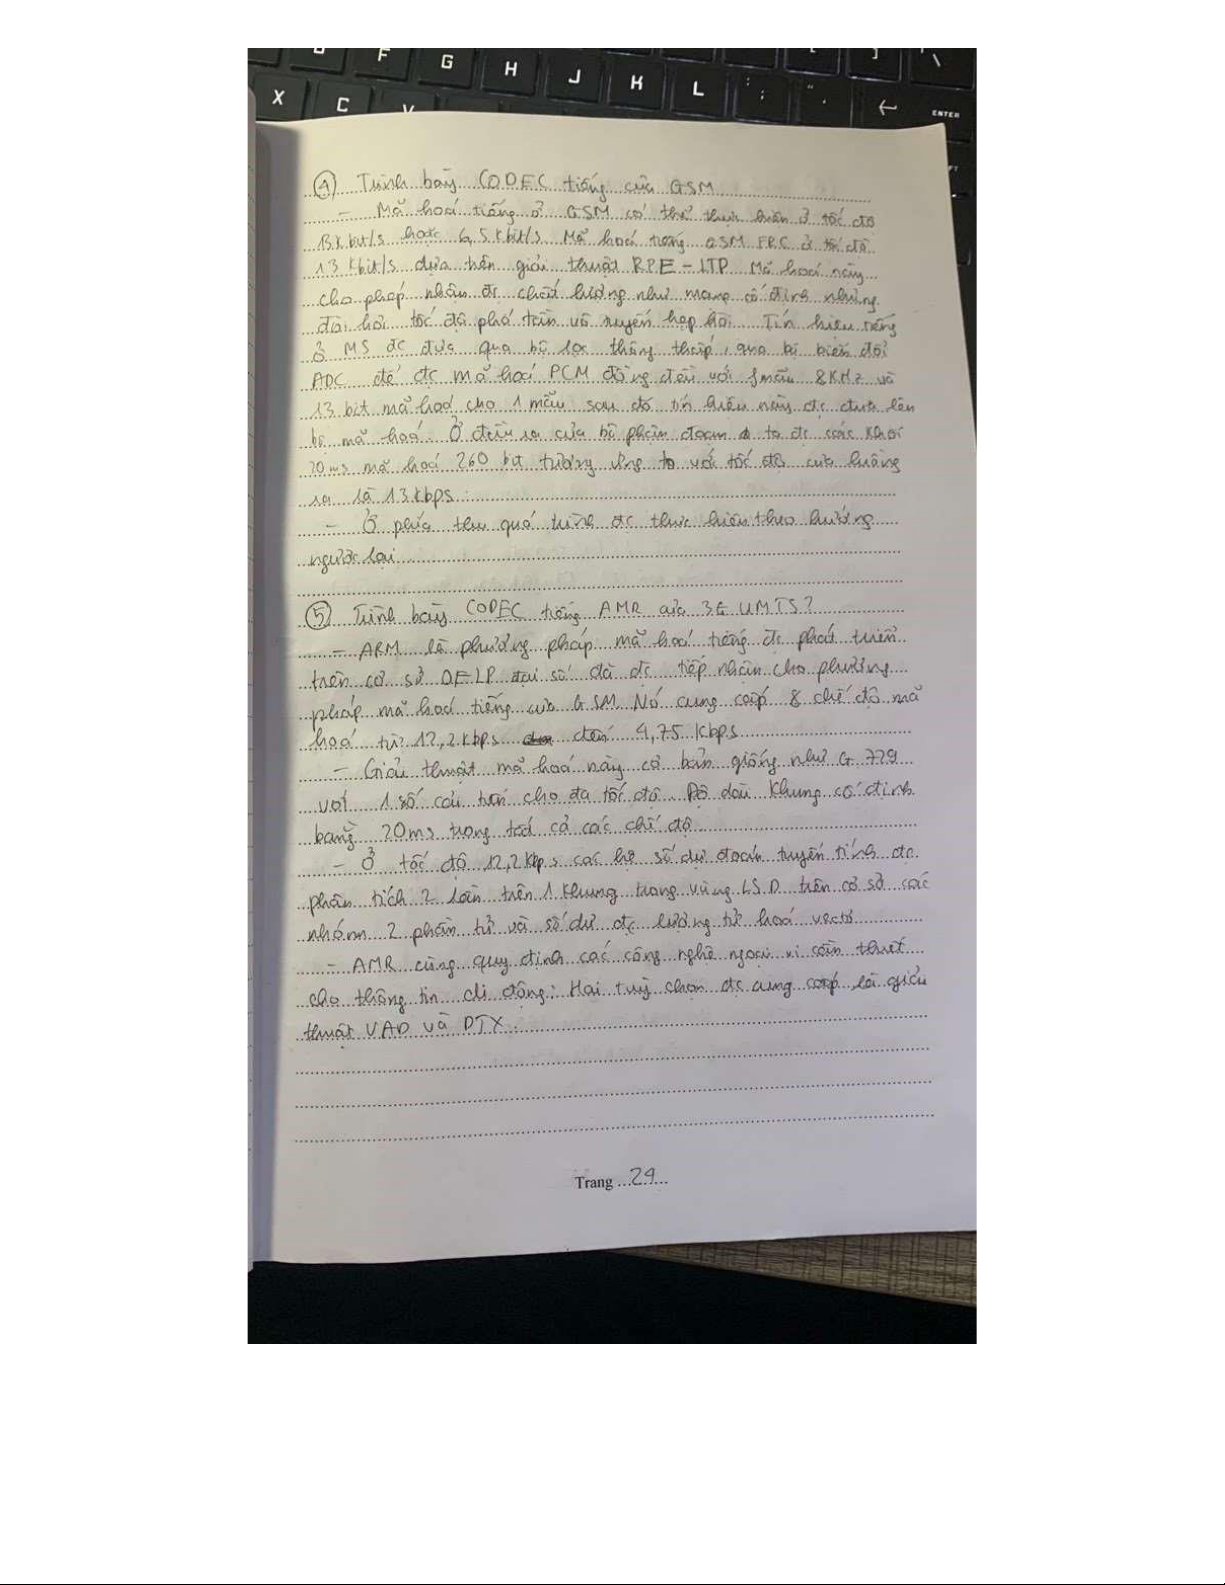 F G H J K L : ; " ' ] \
X C V ENTER
④ Trình bày CODEC tiếng của GSM
- Mã hoá tiếng ở GSM có thể thực hiện ở tốc độ
13 kbit/s hoặc 6,5 Kbit/s Mã hoá tiếng GSM FRC ở tốc độ
13 Kbit/s dựa trên giải thuật RPE - LTP Mã hoá này
cho phép nhận đc chất lượng như mạng cố định nhưng
đòi hỏi tốc độ phá trần vô tuyến hẹp hơn Tín hiệu tiếng
ở MS đc đưa qua bộ lọc thông thấp, qua bộ biến đổi
ADC để đc mã hoá PCM đồng đều với fmẫu 8KHz và
13 bit mã hoá cho 1 mẫu sau đó tín hiệu này đc đưa lên
bộ mã hoá. Ở đầu ra của bộ phân đoạn ta đc các khối
20ms mã hoá 260 bit tương ứng với tốc độ của luồng
ra là 13 kbps
- Ở phía thu quá trình đc thực hiện theo hướng
ngược lại
⑤ Trình bày CODEC tiếng AMR của 3G UMTS?
- ARM là phương pháp mã hoá tiếng đc phát triển
trên cơ sở DELP đại số đã đc tiếp nhận cho phương
pháp mã hoá tiếng của GSM Nó cung cấp 8 chế độ mã
hoá từ 12,2 kbps đến 4,75 Kbps
- Giải thuật mã hoá này cơ bản giống như G 729
với 1 số cải tiến cho đa tốc độ Độ dài Khung cố định
bằng 20ms trong tất cả các chế độ
- Ở tốc độ 12,2 Kbps các hệ số dự đoán tuyến tính đc
phân tích 2 lần trên 1 khung trong vùng LSD trên cơ sở các
nhóm 2 phần tử và số dư đc lượng tử hoá vectơ
- AMR cũng quy định các công nghệ ngoại vi cần thiết
cho thông tin di động: Hai tuỳ chọn đc cung cấp là giải
thuật VAD và DTX.
Trang ...29...